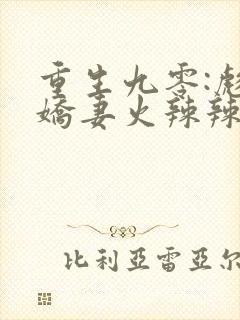 重生九零:
嬌妻火辣辣
比利亞雷亞尔